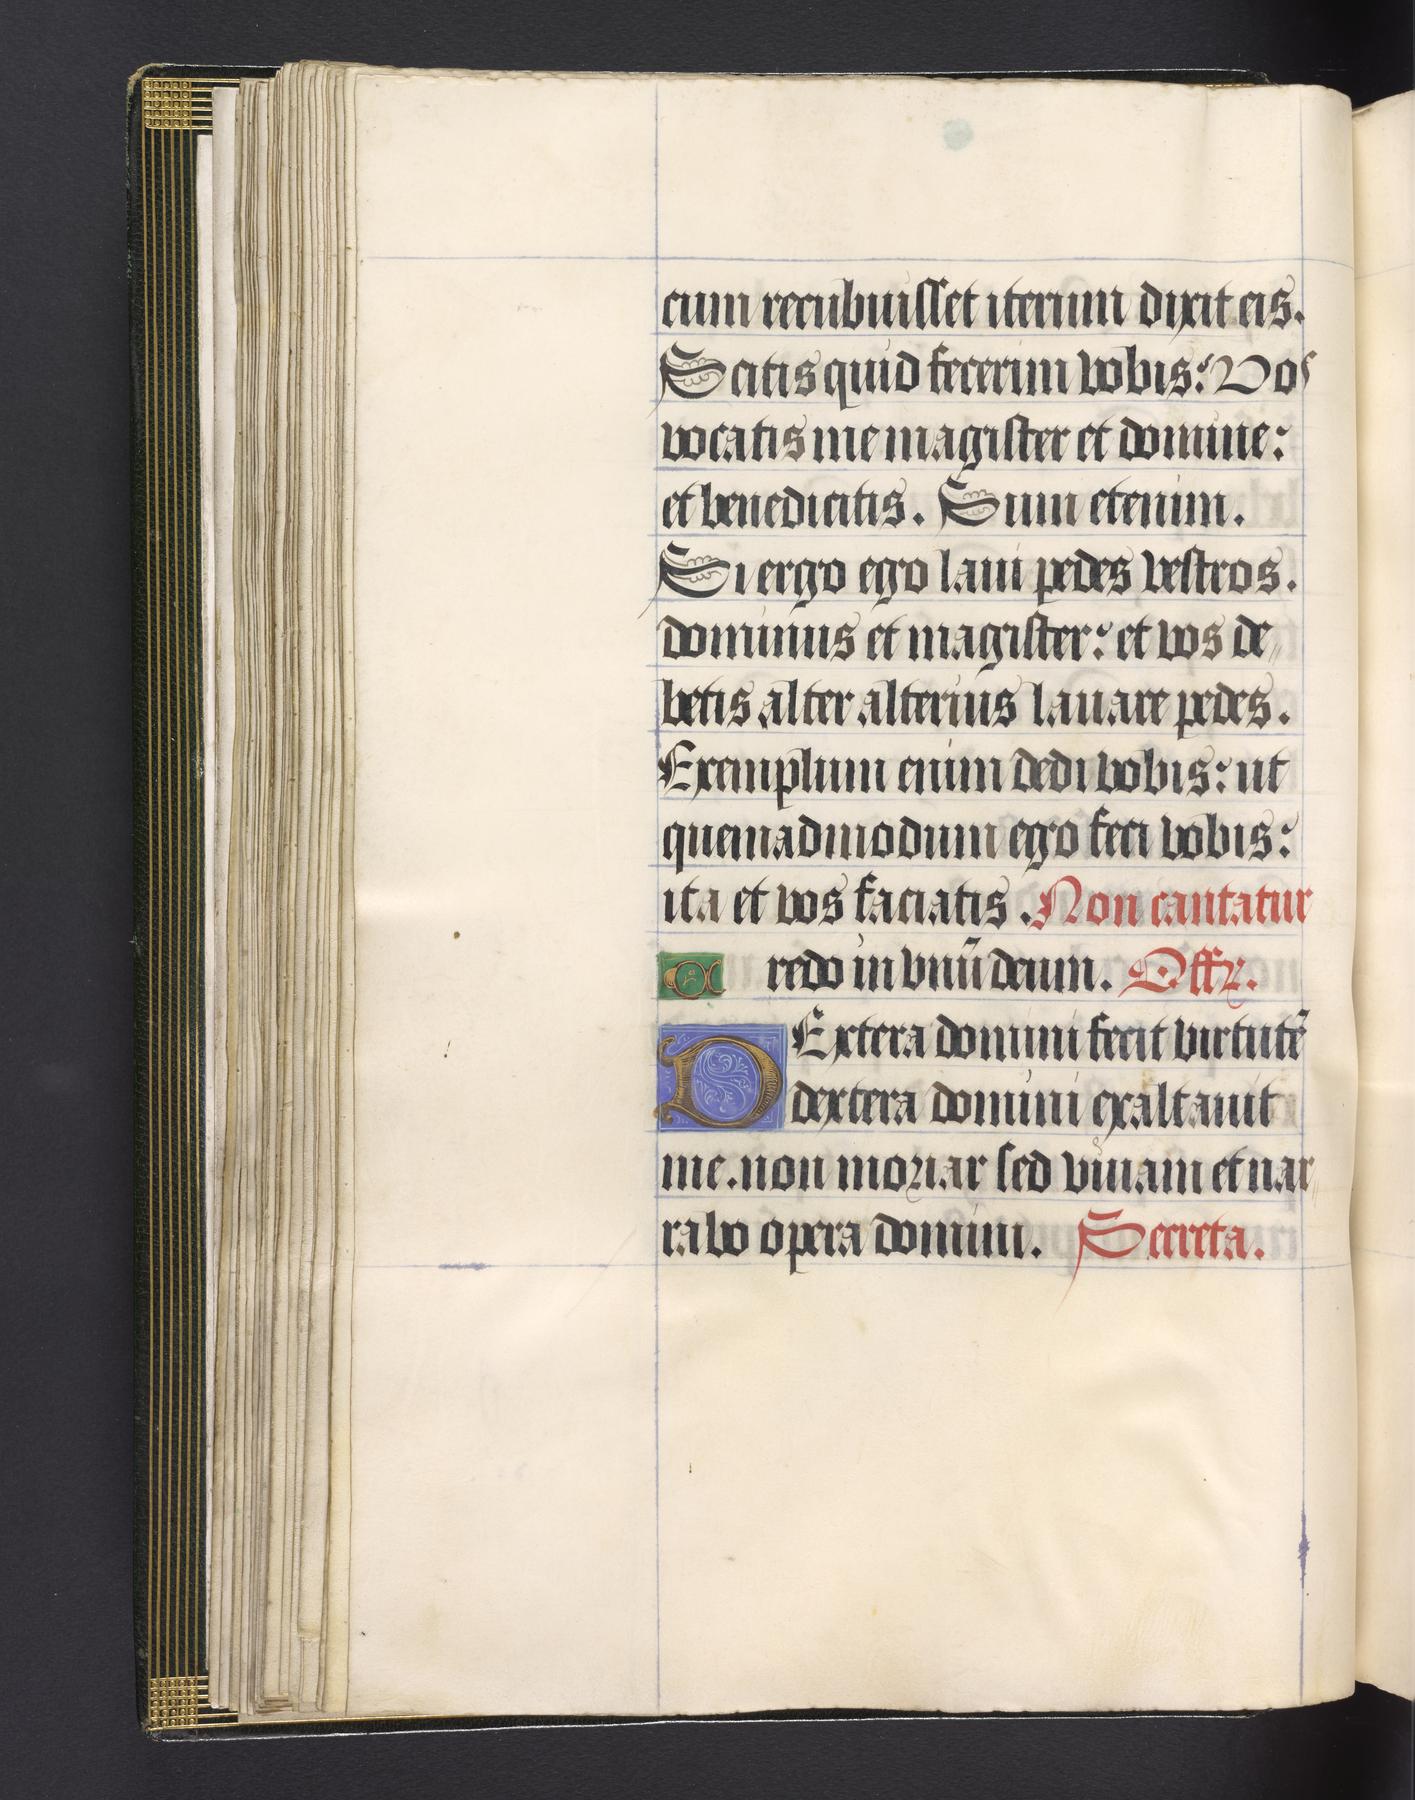 cum recubuisset iterum dixit eis.
Scitis quid fecerim vobis: Vos
vocatis me magister et domine:
et benedicitis. Sum etenim.
Si ergo ego laui pedes vestros.
dominus et magister: et vos de„
betis alter alterius lauare pedes.
Exemplum enim dedi vobis: ut
quemadmodum ego feci vobis:
ita et vos faciatis. Non cantatur
Credo in vnū deum. Offr.
DExtera domini fecit virtutē
dextera domini exaltauit
me. non moriar sed viuam et nar„
rabo opera domini. Secreta.